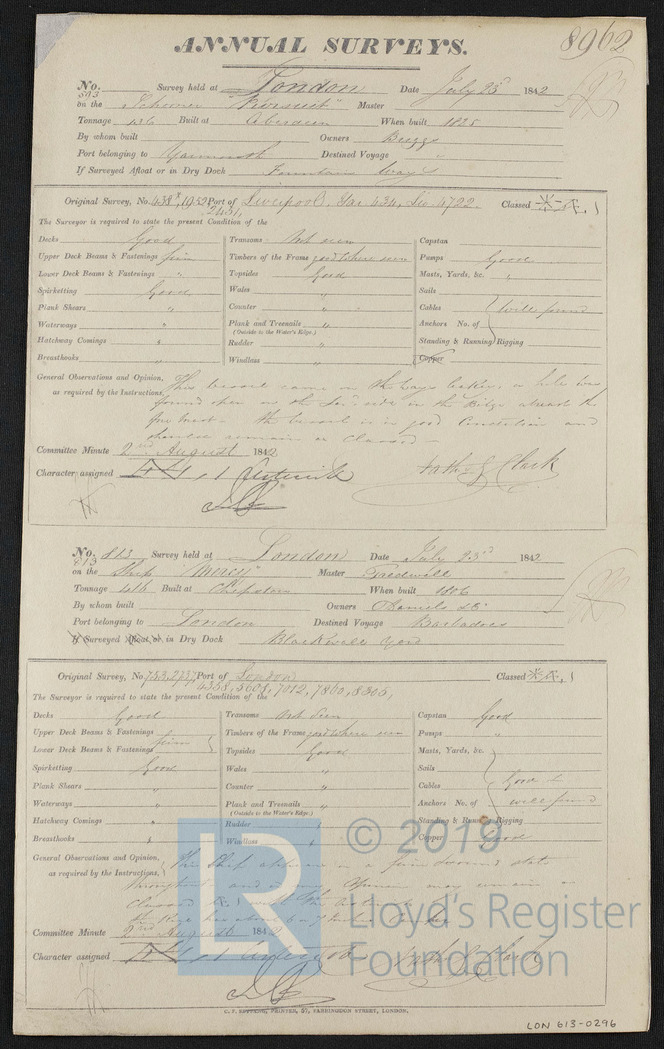 8962
ANNUAL SURVEYS.
No. 803 Survey held at London Date July 23rd 1842
on the Schooner Master
Tonnage 136 Built at Aberdeen When built 1825
By whom built Owners Buggs
Port belonging to Yarmouth Destined Voyage "
If Surveyed Afloat or in Dry Dock Fountain Ways
Original Survey, No. 438, 1052 Port of Liverpool. 434, 4722. Classed
2451,
The Surveyor is required to state the present Condition of the
Decks Good Transoms Not seen Capstan
Upper Deck Beams & Fastenings firm Timbers of the Frame good where seen Pumps Good
Lower Deck Beams & Fastenings " Topsides Good Masts, Yards, &c. "
Spirketting Good Wales " Sails
Plank Shears " Counter " Cables well found
Waterways " Plank and Treenails " Anchors No. of
(Outside to the Water's Edge.)
Hatchway Comings " Rudder " Standing & Running Rigging
Breasthooks " Windlass " Copper
General Observations and Opinion, This vessel came on the Ways
as required by the Instructions, found open on the side in the Bilge abreast the
fore mast. the vessel is in good Condition and
remain as Classed
Committee Minute 2nd August 1842
Character assigned Asterisk
Nath. G Clark
No. 813 Survey held at London Date July 23rd 1842
813
on the Ship "Mercy" Master Tredwell
Tonnage 416 Built at Chepstow When built 1806
By whom built Owners Daniels &Co
Port belonging to London Destined Voyage Barbadoes
If Surveyed Afloat or in Dry Dock Blackwall Yard
Original Survey, No. 753, 2737, Port of London Classed
4358, 5601, 7012, 7860, 8305,
The Surveyor is required to state the present Condition of the
Decks Good Transoms Not Seen Capstan Good
Upper Deck Beams & Fastenings firm Timbers of the Frame good where seen Pumps "
Lower Deck Beams & Fastenings Topsides Good Masts, Yards, &c.
Spirketting Good Wales " Sails
Plank Shears " Counter " Cables Good &
Waterways " Plank and Treenails " Anchors No. of well found
(Outside to the Water's Edge.)
Hatchway Comings " Rudder " Standing & Running Rigging
Breasthooks " Windlass " Copper Good
General Observations and Opinion, This Ship appears in a sound state
as required by the Instructions, throughout and in my Opinion may remain as
Classed
Committee Minute 2nd August 1842
Character assigned Asterisk Nath. G Clark
C. F. SEYFANG, PRINTER, 57, FARRINGDON STREET, LONDON.
LON 613-0296
LR
© 2019
Lloyd's Register
Foundation